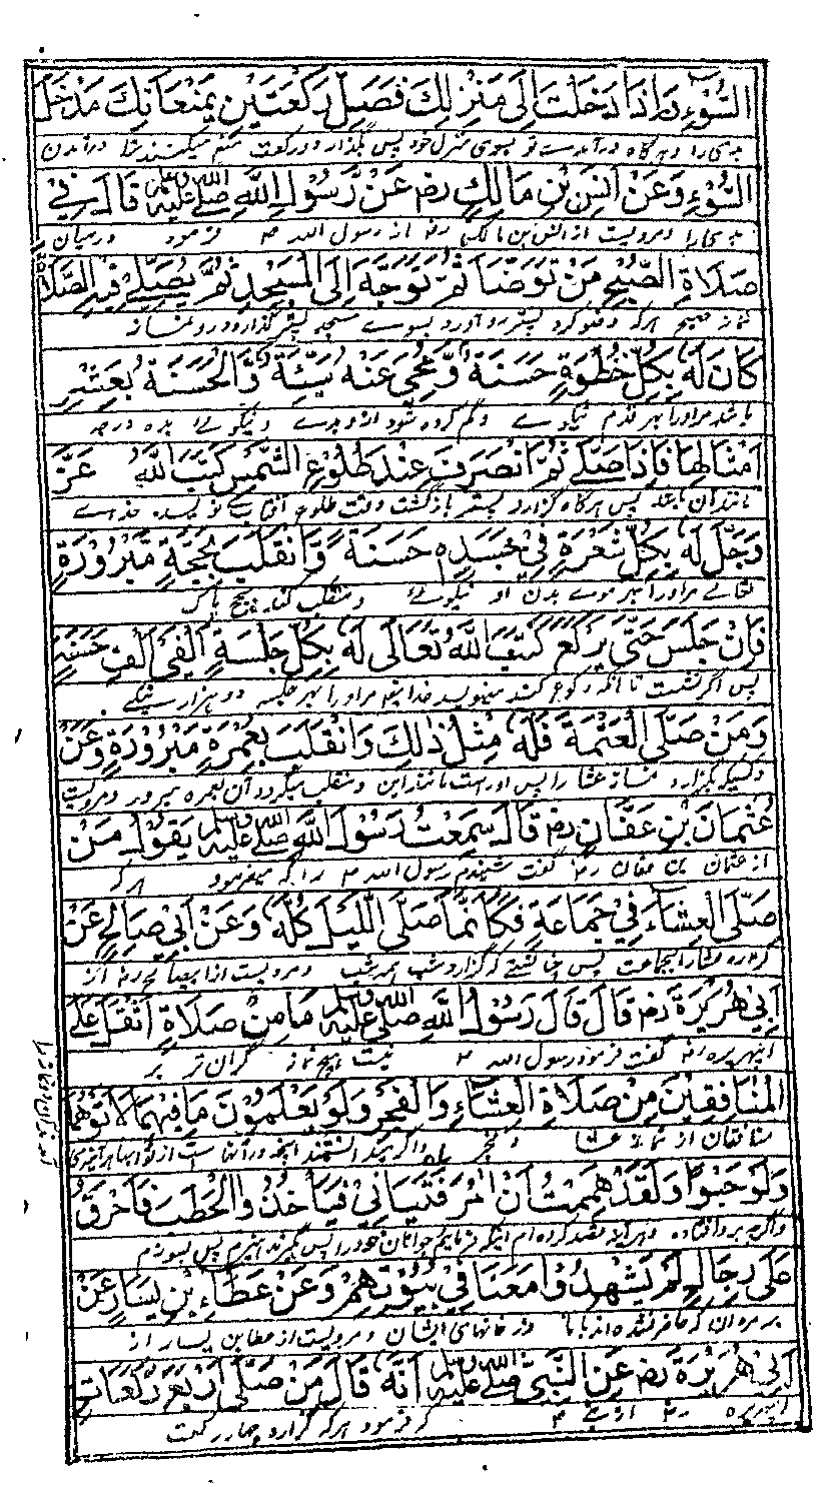 السُّوْءِ وَاِذَا دَخَلْتَ اِلَى مَنْزِلِكَ فَصَلِّ رَكْعَتَيْنِ يَمْنَعَانِكَ مَدْخَلَ
بدی را و هرگاه درآمدے تو بسوی منزل خود پس بگذار دو رکعت منع میکنند ترا درآمدن
السُّوْءِ وَعَنْ اَنَسِ بْنِ مَالِكٍ رضہ عَنْ رَّسُوْلِ اللّٰهِ صلى الله عليه وسلم قَالَ فِيْ
بدی را و مرویست از انس بن مالک رضہ از رسول الله ۳ فرمود درمیان
صَلَاةِ الصُّبْحِ مَنْ تَوَضَّأَ ثُمَّ تَوَجَّهَ اِلَى الْمَسْجِدِ ثُمَّ يُصَلِّيْ فِيْهِ الصَّلَاةَ
نماز صبح هرکه وضو کرد پستر رو آورد بسوے مسجد پستر گذارد درو نماز
كَانَ لَهٗ بِكُلِّ خُطْوَةٍ حَسَنَةٌ وَّمُحِيَ عَنْهُ سَيِّئَةٌ وَّالْحَسَنَةُ بِعَشْرِ
باشد مر او را بهر قدم نیکوے و گم کرده شود از و بدے و نیکوئے بده درجه
اَمْثَالِهَا فَاِذَا صَلّٰى ثُمَّ انْصَرَفَ عِنْدَ طُلُوْعِ الشَّمْسِ كَتَبَ اللّٰهُ عَزَّ
مانند آن باشد پس هرگاه گزارد پستر بازگشت وقت طلوع آفتاب نویسد خداے
وَجَلَّ لَهٗ بِكُلِّ شَعْرَةٍ فِيْ جَسَدِهٖ حَسَنَةً وَّانْقَلَبَ بِحَجَّةٍ مَّبْرُوْرَةٍ
تعالے مر او را بهر موے بدن او نیکوئے و منقلب کند بحج پاک
فَاِنْ جَلَسَ حَتّٰى يَرْكَعَ كَتَبَ اللّٰهُ تَعَالٰى لَهٗ بِكُلِّ جَلْسَةٍ اَلْفَيْ اَلْفِ حَسَنَةٍ
پس اگر نشست تا آنکه رکوع کند مینویسد خدا مر او را بهر جلسه دو هزار نیکے
وَمَنْ صَلَّى الْعَتَمَةَ فَلَهٗ مِثْلُ ذٰلِكَ وَانْقَلَبَ بِعُمْرَةٍ مَبْرُوْرَةٍ وَعَنْ
و کسیکه بگزارد نماز عشا را پس او راست مانند این و منقلب میگردد آن بعمره مبرور و مرویست
عُثْمَانَ بْنِ عَفَّانٍ رضہ قَالَ سَمِعْتُ رَسُوْلَ اللّٰهِ صلى الله عليه وسلم يَقُوْلُ مَنْ
از عثمان بن عفان رضہ گفت شنیدم رسول الله ۳ را که میفرمود هرکه
صَلَّى الْعِشَآءَ فِيْ جَمَاعَةٍ فَكَاَنَّمَا صَلَّى اللَّيْلَ كُلَّهٗ وَعَنْ اَبِيْ صَالِحٍ عَنْ
گزارد عشا را بجماعت پس گزارد شب همه شب و مرویست از ابیصالح رضہ از
اَبِيْ هُرَيْرَةَ رضہ قَالَ قَالَ رَسُوْلُ اللّٰهِ صلى الله عليه وسلم مَا مِنْ صَلَاةٍ اَثْقَلُ عَلَى
ابیهریره رضہ گفت فرمود رسول الله ۳ نیست هیچ نماز گران تر بر
الْمُنَافِقِيْنَ مِنْ صَلَاةِ الْعِشَآءِ وَالْفَجْرِ وَلَوْ يَعْلَمُوْنَ مَا فِيْهِمَا لَاَتَوْهُمَا
منافقان از نماز عشا و فجر و اگر میدانستند آنچه در آنها است از ثوابها
وَلَوْ حَبْوًا وَلَقَدْ هَمَمْتُ اَنْ اٰمُرَ فِتْيَانِيْ فَيَأْخُذُوا الْحَطَبَ فَاُحْرِقُ
و هر آینه قصد کرده ام اینکه فرمایم جوانان خود را پس گیرند هیزم پس بسوزم
عَلٰى رِجَالٍ لَمْ يَشْهَدُوْا مَعَنَا فِيْ بُيُوْتِهِمْ وَعَنْ عَطَاءِ بْنِ يَسَارٍ عَنْ
بر مردان که حاضر نشده اند با ما در خانهای ایشان و مرویست از عطا بن یسار از
اَبِيْ هُرَيْرَةَ رضہ عَنِ النَّبِيِّ صلى الله عليه وسلم اَنَّهٗ قَالَ مَنْ صَلّٰى اَرْبَعَ رَكْعَاتٍ
ابیهریره رضہ از نبے ۳ که فرمود هرکه گزارد چهار رکعت